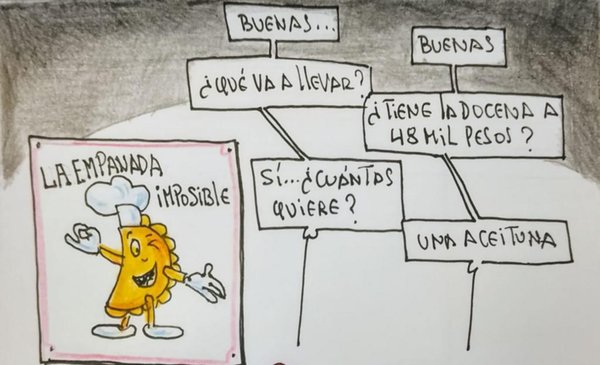 BUENAS...
BUENAS
¿QUÉ VA A llEVAR?
¿TIENE lA DOCENA A
48 MIL PESOS?
SÍ...¿CUÁNTAS
QUIERE?
UNA ACEITUNA
LA EMPANADA
iMPOSIBLE